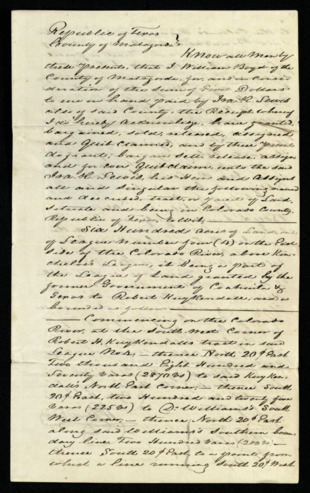 Republic of Texas
County of Matagorda
Know all Men by
these Presents, that I William Boyd of the
County of Matagorda for and in consid
eration of the sum of Five Dollars
to me in hand paid by Ira R. Lewis
also of said County the Receipt whereof
I do hereby acknowledge, have granted
bargained, sold, released, assigned
and Quit Claimed, and by these presents
do grant, bargain sell release, assign
and for ever Quit Claim, unto the said
Ira R. Lewis, his Heirs and Assigns
all and singular the following named
and described tract, or parcel of Land,
situate and being in Colorado County,
Republic of Texas, to wit,
Six Hundred acres of Land out
of League Number four (4) on the East
side of the Colorado River, above
League, it being a part of
the League of land granted by the
former Government of Coahuila &
Texas to Robert Kuykendall, and is
bounded as follows
Commencing on the Colorado
River, at the South West Corner of
Robert H. Kuykendalls tract in said
League No 4, thence North 20° East
Two thousand Eight Hundred and
Seventy Varas (2870 vs) to said Kuyken
dalls North East Corner, thence South
20° East, two hundred and twenty five
Varas (225 vs) to Williams's South
West Corner, thence North 20° East
along said Williams's Southern boun
dary line Two Hundred Varas (200 vs)
thence South 20° East, to a point from
which a line running South 20° West